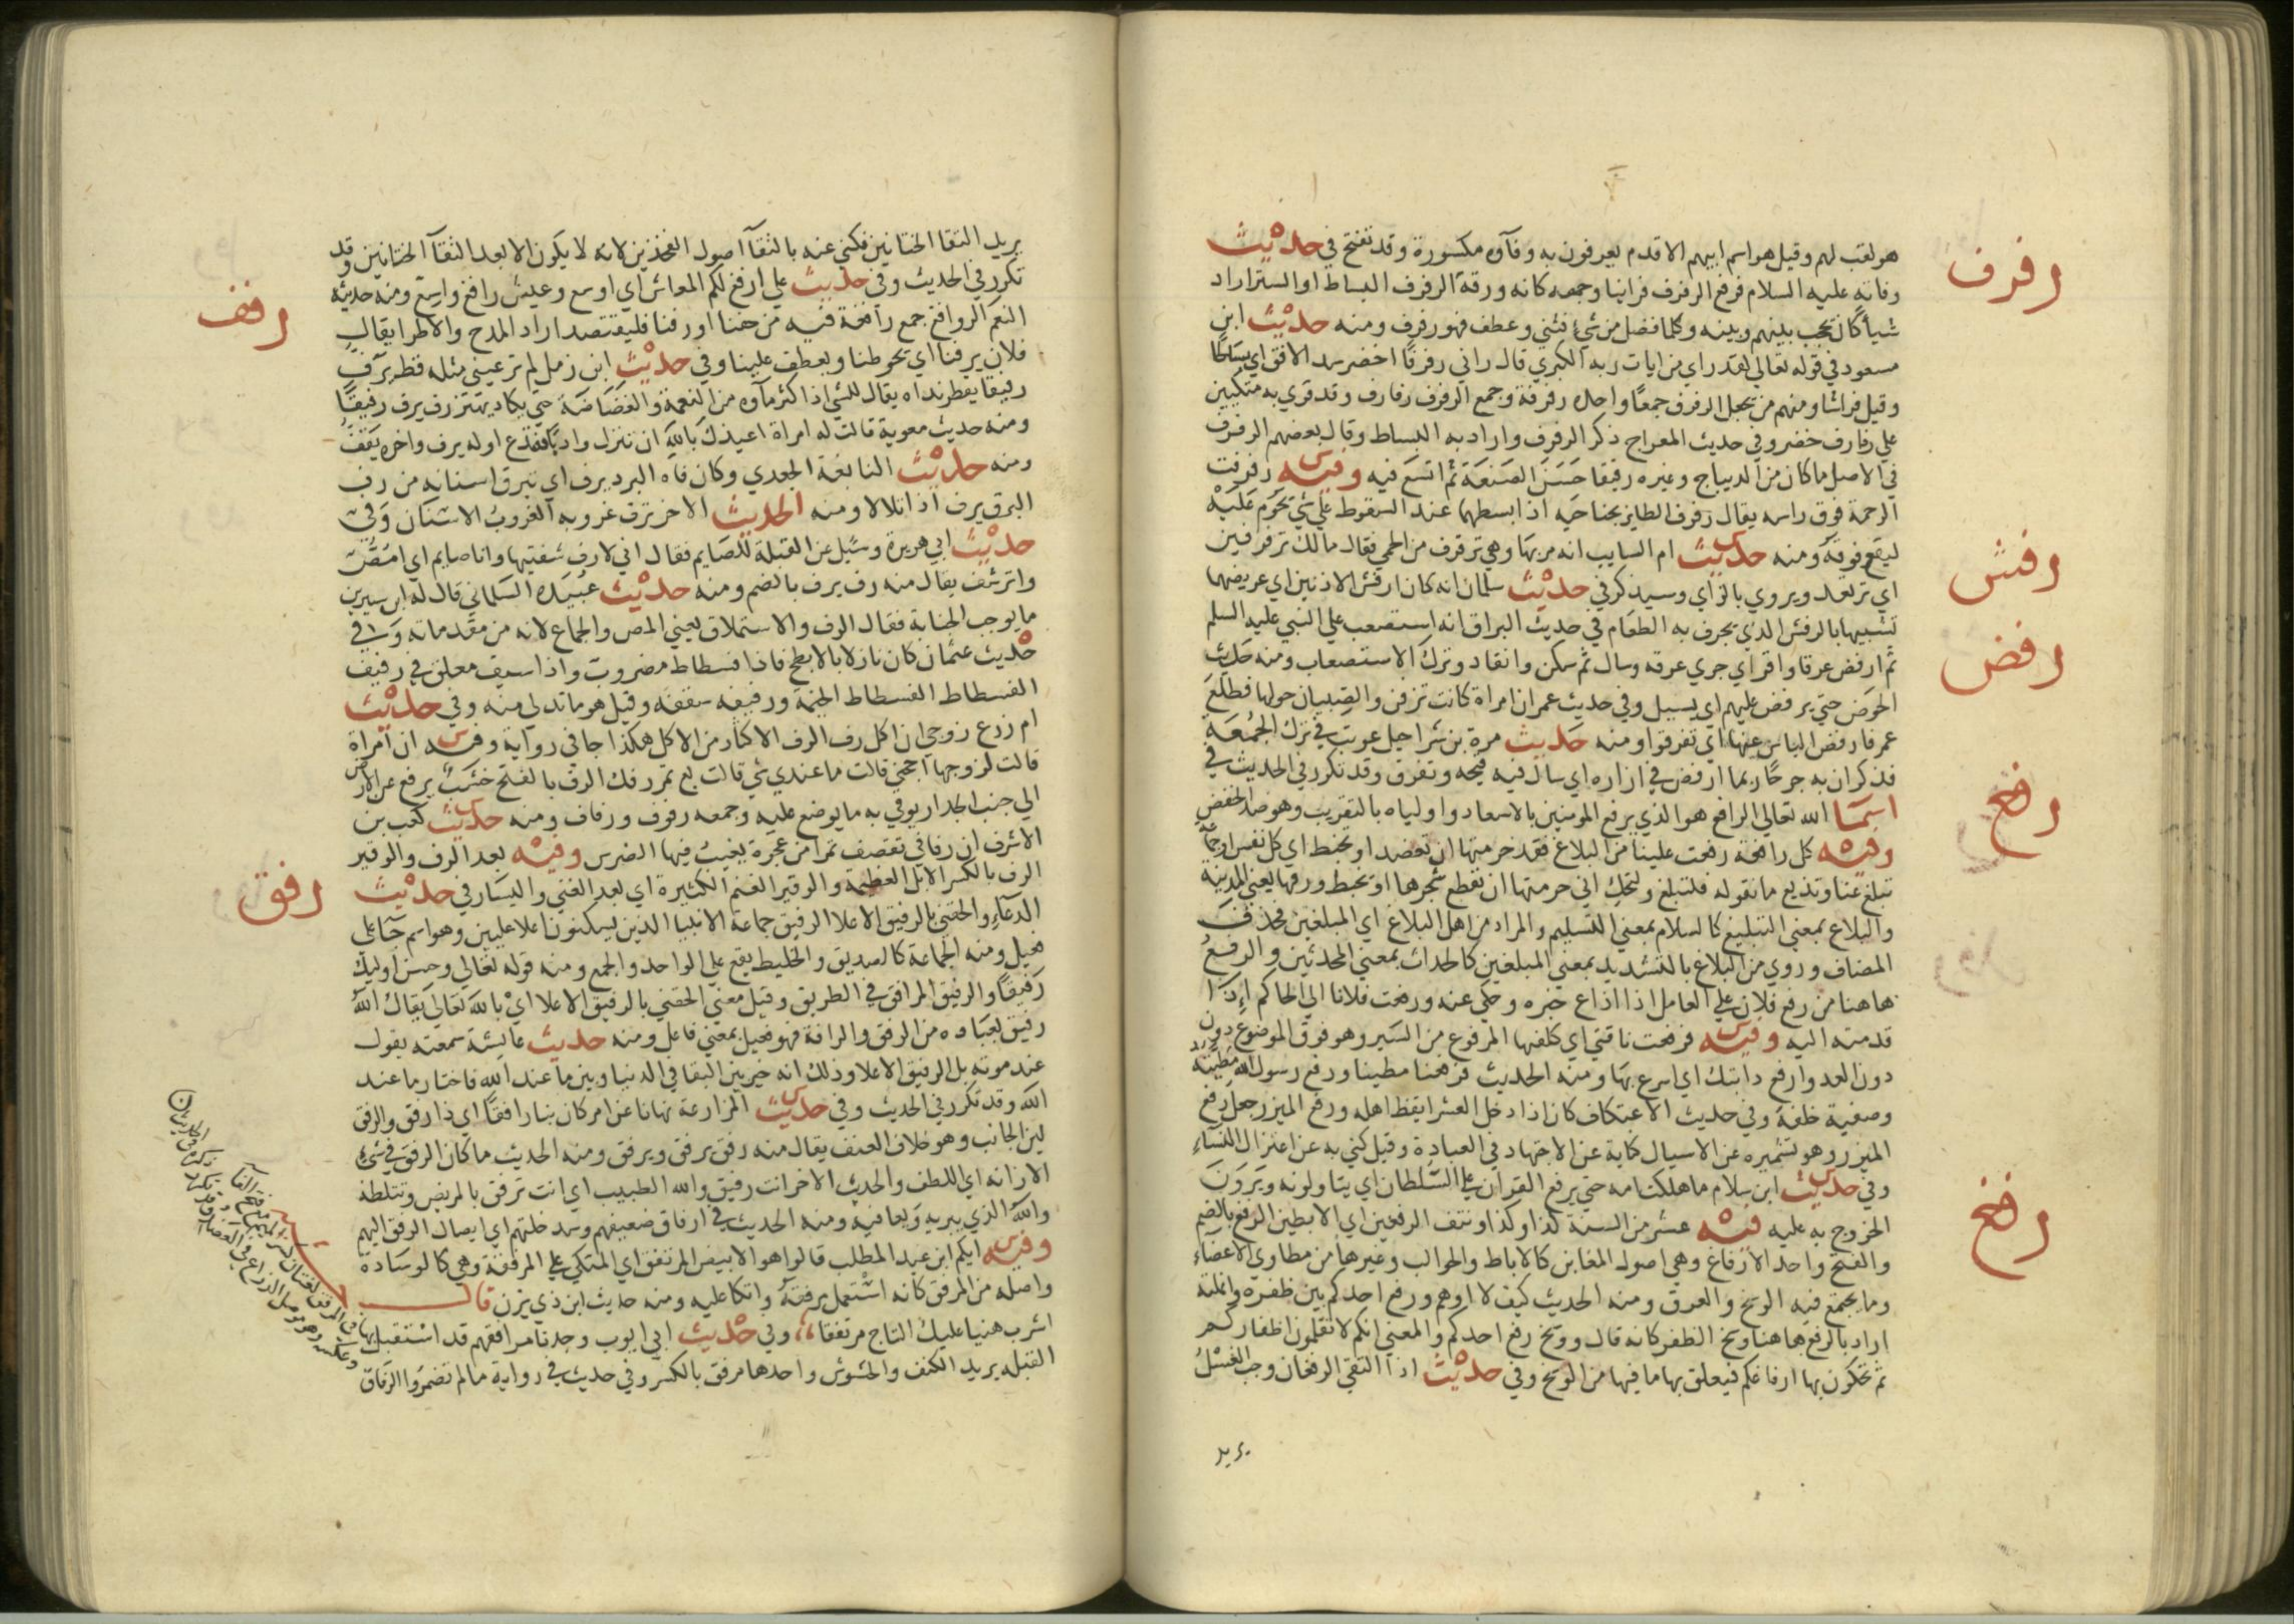 رفرف
هو لقب لهم وقيل هو اسم ابيهم الاقدم يعرفون به وفآوه مكسورة وقد تفتح في حديث
وفاته عليه السلام فرفع الرفرف فراينا وجهه كانه ورقة الرفرف البساط او الستر اراد
شيأ كان يحجب بينهم وبينه وكلما فضل من شيء فثني وعطف فهو رفرف ومنه حديث ابن
مسعود في قوله تعالي لقد راي من ايات ربه الكبري قال راي رفرفا اخضر سد الافق اي بساطا
وقيل فراشا ومنهم من يجعل الرفرف جمعا واحده رفرفة وجمع الرفرف رفارف وقد قري به متكيين
علي رفارف خضر وفي حديث المعراج ذكر الرفرف واراد به البساط وقال بعضهم الرفرف
في الاصل ما كان من الديباج وغيره رقيقا حسن الصنعة ثم اتسع فيه وفيه رفرفت
الرحمة فوق راسه يقال رفرف الطاير بجناحيه اذا بسطهما عند السقوط علي شي يحوم عليه
رفش
ليقع فوقه ومنه حديث ام السايب انه مر بها وهي ترفرف من الحمي فقال مالك ترفرفين
اي ترتعد ويروي بالزاي وسيذكر في حديث سلمان انه كان ارفش الاذنين اي عريضهما
رفض
تشبيها بالرفش الذي يجرف به الطعام في حديث البراق انه استصعب علي النبي عليه السلم
ثم ارفض عرقا واقر اي جري عرقه وسال ثم سكن وانقاد وترك الاستصعاب ومنه حديث
الحوض حتي يرفض عليهم اي يسيل وفي حديث عمر ان امراة كانت تزفن والصبيان حولها فطلع
عمر فارفض الناس عنها اي تفرقوا ومنه حديث مرة بن شراحيل عوتب في ترك الجمعة
فذكر ان به جرحا ربما ارفض في ازاره اي سال فيه قيحه وتفرق وقد تكرر في الحديث في
رفع
اسما الله تعالي الرافع هو الذي يرفع المومنين بالاسعاد واولياه بالتقريب وهو ضد الخفض
وفيه كل رافعة رفعت علينا من البلاغ فقد حرمتها ان تعضد او تخبط اي كل نفس او جماعة
تبلغ عنا وتذيع ما نقوله فلتبلغ ولتحك اني حرمتها ان تقطع شجرها او تخبط ورقها يعني المدينة
والبلاغ بمعني التبليغ كالسلام بمعني التسليم والمراد من اهل البلاغ اي المبلغين فحذف
المضاف وروي من البلاغ بالتشديد بمعني المبلغين كالحداث بمعني المحدثين والرفع
هاهنا من رفع فلان علي العامل اذا اذاع خبره وحكي عنه ورفعت فلانا الي الحاكم اذا
قدمته اليه وفيه فرفعت ناقتي اي كلفها المرفوع من السير وهو فوق الموضوع دون
دون العدو ارفع دابتك اي اسرع بها ومنه الحديث فرفعنا مطينا ورفع رسول الله مطيته
وصفية خلفه وفي حديث الاعتكاف كان اذا دخل العشر ايقظ اهله ورفع الميزر جعل رفع
الميزر وهو تشميره عن الاسبال كناية عن الاجتهاد في العبادة وقيل كني به عن اعتزال النساء
وفي حديث ابن سلام ما هلكت امه حتي يرفع القران علي السلطان اي يتاولونه ويرون
رفغ
الخروج به عليه فيه عشر من السنة كذا وكذا ونتف الرفغين اي الابطين الرفغ بالضم
والفتح واحد الارفاغ وهي اصول المغابن كالاباط والحوالب وغيرها من مطاوي الاعضاء
وما يجتمع فيه الوسخ والعرق ومنه الحديث كيف لا اوهم ورفغ احدكم بين ظفره وانملته
اراد بالرفغ هاهنا وسخ الظفر كانه قال ووسخ رفغ احدكم والمعني انكم لا تقلمون اظفاركم
ثم تحكون بها ارفاغكم فيعلق بها ما فيها من الوسخ وفي حديث اذا التقي الرفغان وجب الغسل
يريد
يريد التقا الختانين فكني عنه بالتقآ اصول الفخذين لانه لا يكون الا بعد التقآ الختانين وقد
تكرر في الحديث وفي حديث علي ارفغ لكم المعاش اي اوسع وعيش رافغ واسع ومنه حديثه
رفف
النعم الروافغ جمع رافغة فيه من حفنا او رفنا فليقتصد اراد المدح والاطرا يقال
فلان يرفنا اي يحوطنا ويعطف علينا وفي حديث ابن زمل لم ترعيني مثله قط يرف
رفيفا يقطر نداه يقال للشي اذا كثر مآوه من النعمة والغضاضة حتي يكاد يهتز رف يرف رفيفا
ومنه حديث معوية قالت له امراة اعيذك بالله ان تنزل واديا فتدع اوله يرف واخره يقف
ومنه حديث النابغة الجعدي وكان فاه البرد يرف اي تبرق اسنانه من رف
البرق يرف اذا تلالا ومنه الحديث الاخر ترف غروبه الغروب الاسنان وفي
حديث ابي هريرة وسئل عن القبلة للصايم فقال اني لارف شفتيها وانا صايم اي امص
واترشف يقال منه رف يرف بالضم ومنه حديث عبيدة السلماني قال له ابن سيرين
ما يوجب الجنابة فقال الرف والاستملاق يعني المص والجماع لانه من مقدماته وفي
حديث عثمان كان نازلا بالابطح فاذا فسطاط مضروب واذا سيف معلق في رفيف
الفسطاط الفسطاط الخيمة ورفيفه سقفه وقيل هو ما تدلي منه وفي حديث
ام زرع زوجي ان اكل رف الرف الاكثار من الاكل هكذا جا في رواية وفيه ان امراة
قالت لزوجها احجني قالت ما عندي شي قالت بع تمر رفك الرف بالفتح خشب يرفع عن الارض
الي جنب الجدار يوقي به ما يوضع عليه وجمعه رفوف ورفاف ومنه حديث كعب بن
الاشرف ان رفافي تقصف تمرا من عجوة يغيب فيها الضرس وفيه بعد الرف والوقير
رفق
الرف بالكسر الابل العظيمة والوقير الغنم الكثيرة اي بعد الغني واليسار في حديث
الدعاء والحقني بالرفيق الاعلا الرفيق جماعة الانبيا الذين يسكنون اعلا عليين وهو اسم جآ علي
فعيل ومنه الجماعة كالصديق والخليط يقع علي الواحد والجمع ومنه قوله تعالي وحسن اوليك
رفيقا والرفيق المرافق في الطريق وقيل معني الحقني بالرفيق الاعلا اي بالله تعالي يقال الله
رفيق بعباده من الرفق والرافة فهو فعيل بمعني فاعل ومنه حديث عائشة سمعته يقول
عند موته بل الرفيق الاعلا وذلك انه خير بين البقا في الدنيا وبين ما عند الله فاختار ما عند
الله وقد تكرر في الحديث وفي حديث المزارعة نهانا عن امر كان بنا رافقا اي ذا رفق والرفق
لين الجانب وهو خلاف العنف يقال منه رفق يرفق ويرفق ومنه الحديث ما كان الرفق في شيء
الا زانه اي اللطف والحديث الاخر انت رفيق والله الطبيب اي انت ترفق بالمريض وتتلطفه
والله الذي يبريه ويعافيه ومنه الحديث في ارفاق ضعيفهم وسد خلتهم اي ايصال الرفق اليهم
وفيه ايكم ابن عبد المطلب قالوا هو الابيض المرتفق اي المتكي علي المرفقة وهي كالوسادة
واصله من المرفق كانه استعمل مرفقه واتكا عليه ومنه حديث ابن ذي يزن قال
اشرب هنيا عليك التاج مرتفقا وفي حديث ابي ايوب وجدنا مرافقهم قد استقبل بها
القبله يريد الكنف والحشوش واحدها مرفق بالكسر وفي حديث في رواية ما لم تضمروا الرفاق
في المرفق لغتان كسر الميم وفتح الفآ
وعكسه وهو موصل الذراع في العضد وقد تكرر